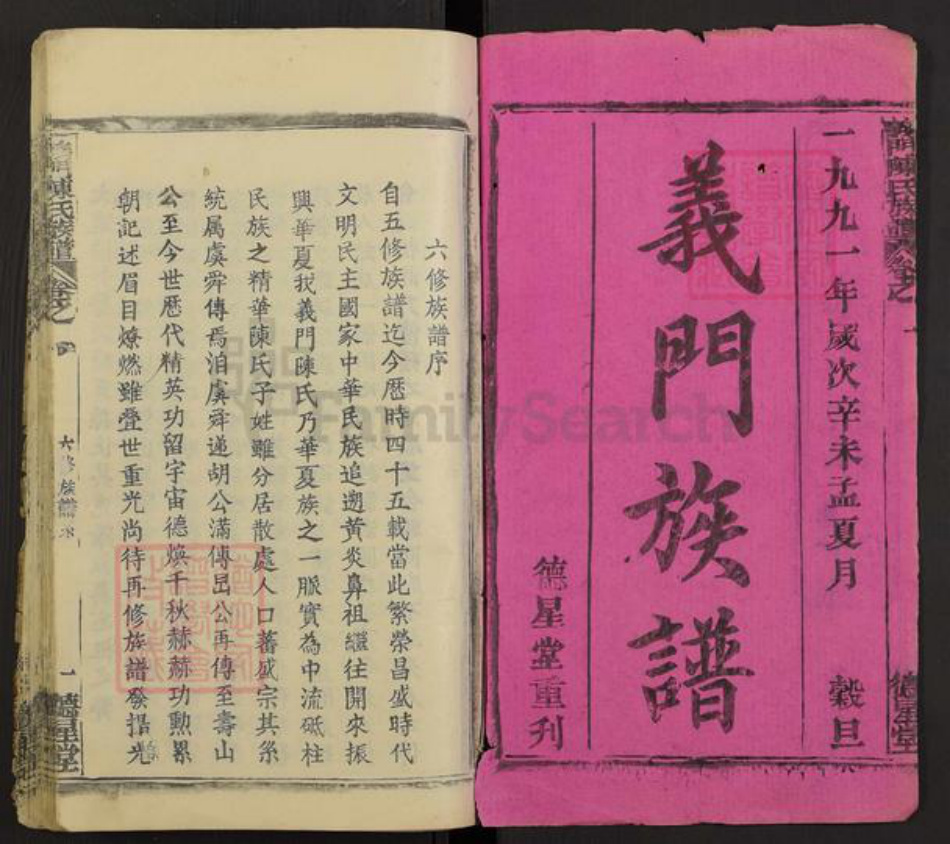 義門陳氏族譜 卷之一
一九九一年歲次辛未孟夏月 穀旦
德星堂
義門族譜
德星堂重刊
六修族譜序
自五修族譜迄今歷時四十五載當此繁榮昌盛時代
文明民主國家中華民族追遡黃炎鼻祖繼往開來振
興華夏我義門陳氏乃華夏族之一脈實為中流砥柱
民族之精華陳氏子姓雖分居散處人口蕃盛宗其系
統属虞舜傳焉洎虞舜遞胡公滿傳
公再傳至壽山
公至今世歷代精英功留宇宙德煥千秋赫赫功勲累
朝記述眉目燎燃雖疊世重光尚待再修族譜發揚光
義門陳氏族譜 卷之
六修族譜序
一
德星堂
FamilySearch